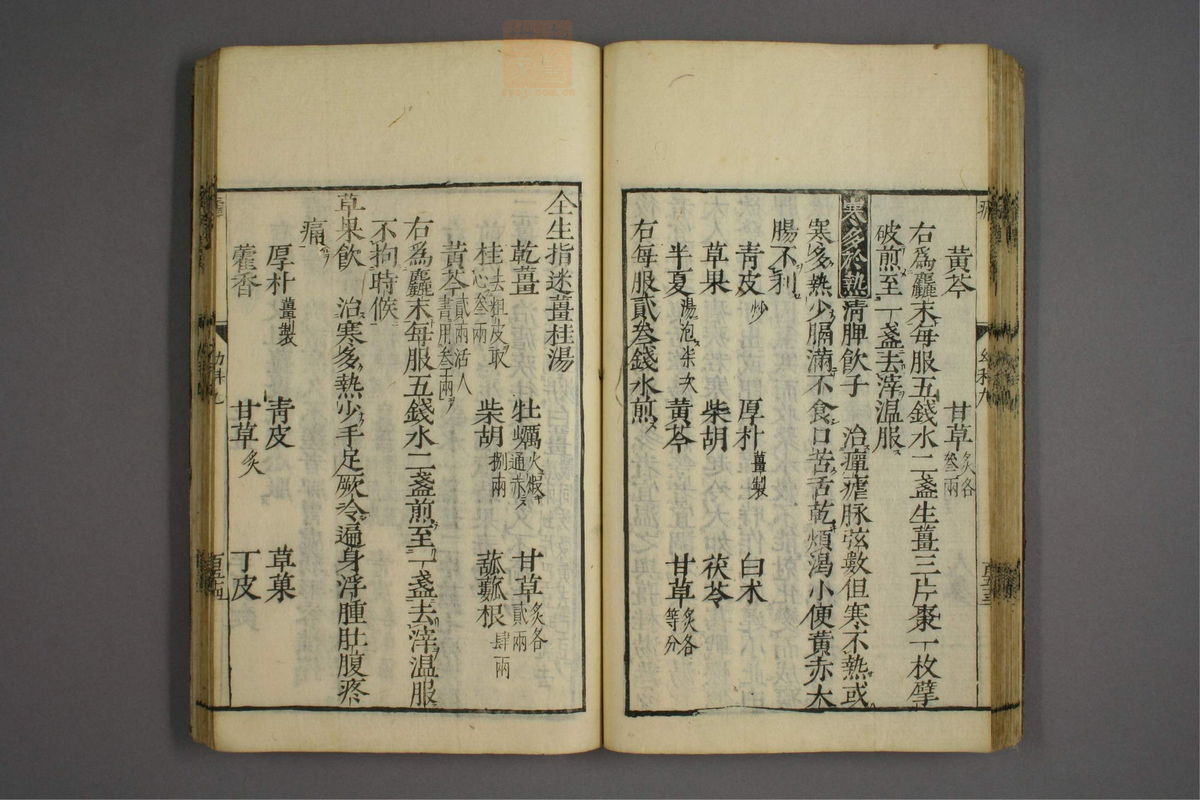 黃芩 甘草炙各叄兩
右爲麤末每服五錢水二盞生薑三片棗一枚擘
破煎至一盞去滓温服
寒多於熱清脾飲子 治癉瘧脉弦數但寒不熱或
寒多熱少膈滿不食口苦舌乾煩渴小便黃赤大
腸不利
青皮炒 厚朴薑製 白术
草果 柴胡 茯苓
半夏湯泡柒次 黃芩 甘草炙各等分
右每服貳叄錢水煎
全生指迷薑桂湯
乾薑 牡蠣火煆通赤 甘草炙各貳兩
桂去粗皮取心叄兩 柴胡捌兩 蓏蔞根肆兩
黃芩貳兩活人書用叄兩
右爲麤末每服五錢水二盞煎至一盞去滓温服
不拘時候
草果飲 治寒多熱少手足厥冷遍身浮腫肚腹疼
痛
厚朴薑製 青皮 草菓
藿香 甘草炙 丁皮
幼科九
百五十三
幼科九
百五十四